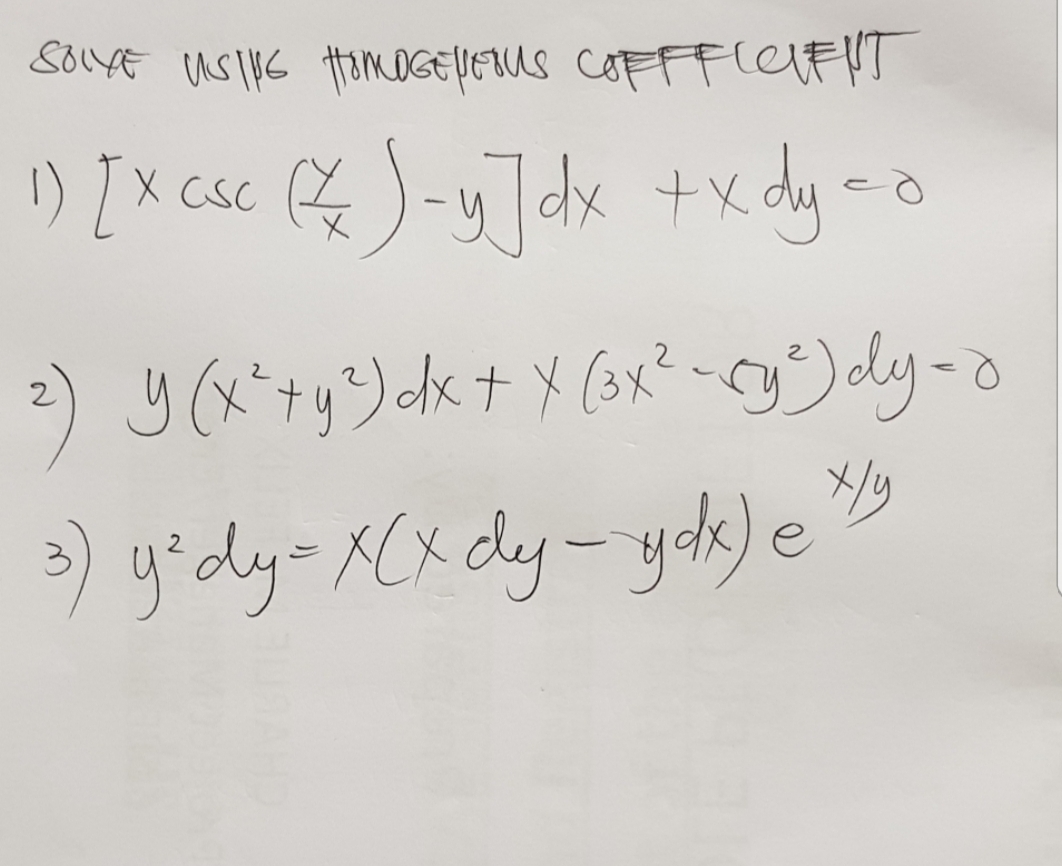 SOLVE USING HOMOGENEOUS COEFFICIENT
1) [x csc (y/x) - y] dx + x dy = 0
2) y (x² + y²) dx + x (3x² - 5y²) dy = 0
3) y² dy = x(x dy - y dx) e^(x/y)